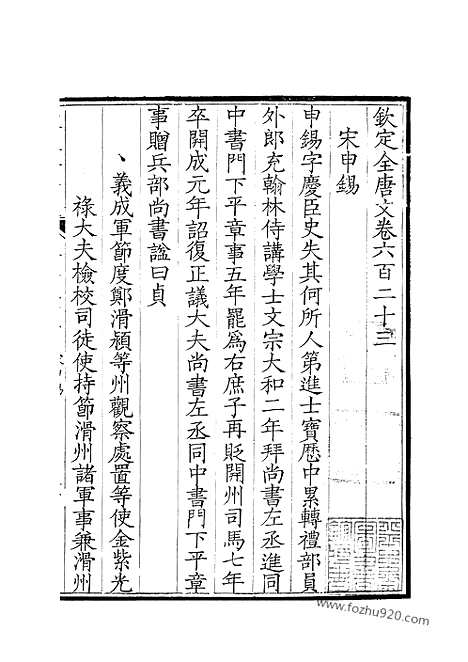 欽定全唐文卷六百二十三
宋申錫
申錫字慶臣史失其何所人第進士寶歷中累轉禮部員
外郎充翰林侍講學士文宗大和二年拜尚書左丞進同
中書門下平章事五年罷爲右庶子再貶開州司馬七年
卒開成元年詔復正議大夫尚書左丞同中書門下平章
事贈兵部尚書謚曰貞
義成軍節度鄭滑潁等州觀察處置等使金紫光
祿大夫檢校司徒使持節滑州諸軍事兼滑州
www.fozhu920.com